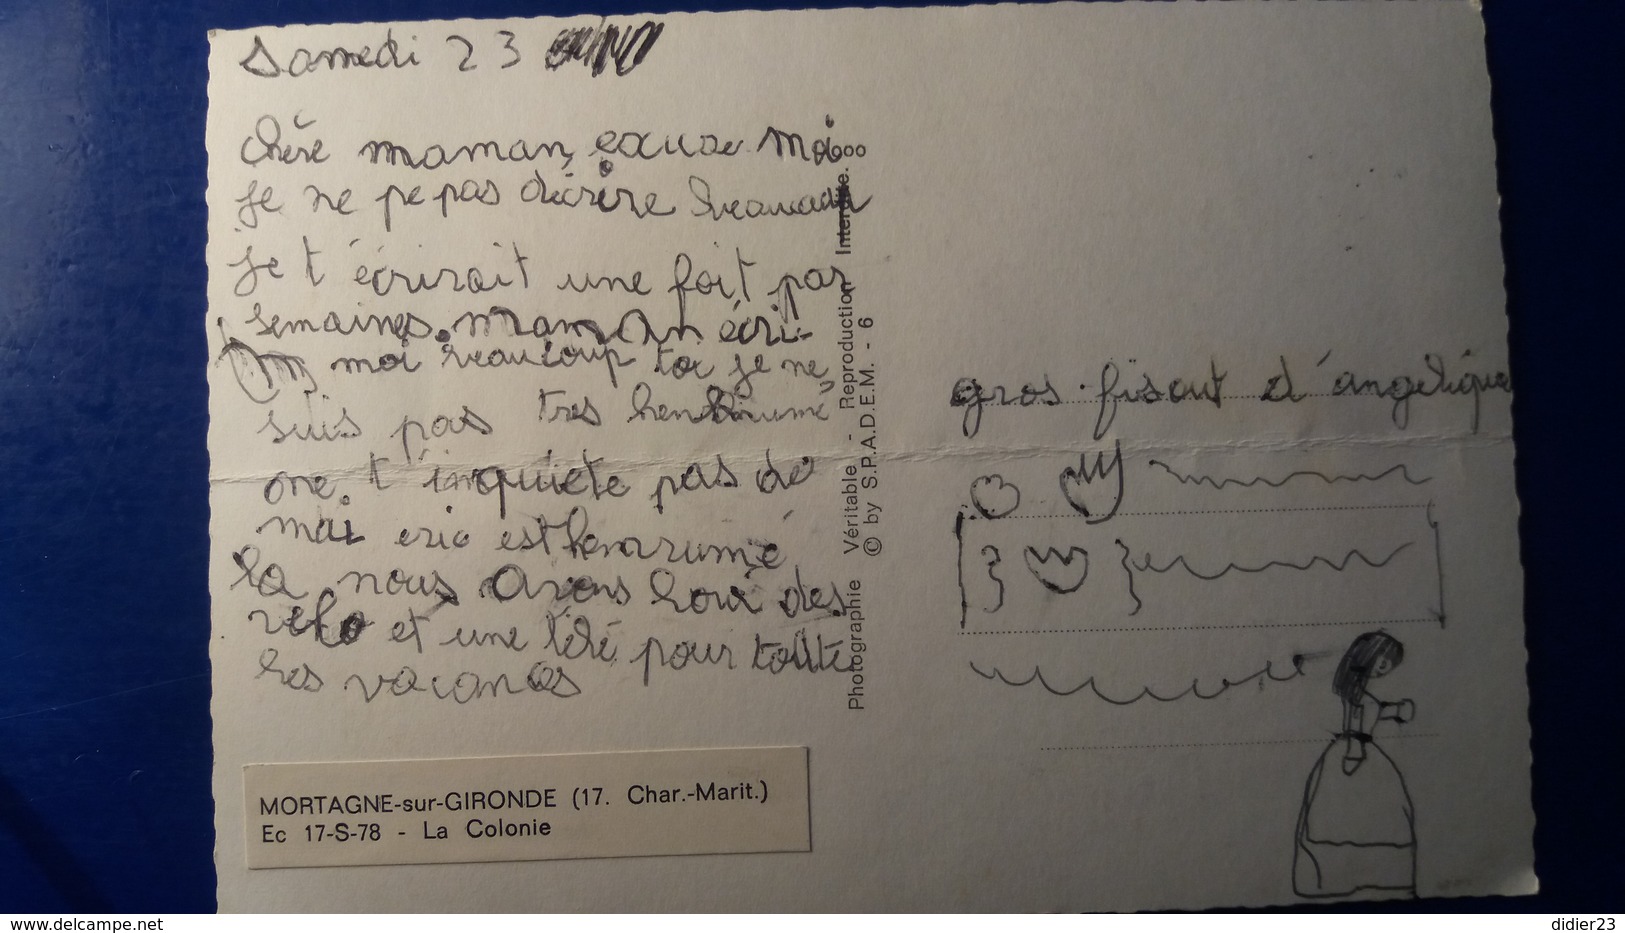 Samedi 23
chère maman, excuse moi
je ne pe pas décrire beaucau
je t'écrirait une foit par
semaines. maman écri-
moi beaucoup toi je ne
suis pas tres henrhumé
one. t'inquiete pas de
moi eric est henrrumé
la nous avons loué des
velo et une télé pour toute
les vacances
gros fisout d'angelique
Photographie Véritable - Reproduction Interdite.
© by S.P.A.D.E.M. - 6
MORTAGNE-sur-GIRONDE (17. Char.-Marit.)
Ec 17-S-78 - La Colonie
www.delcampe.net
didier23